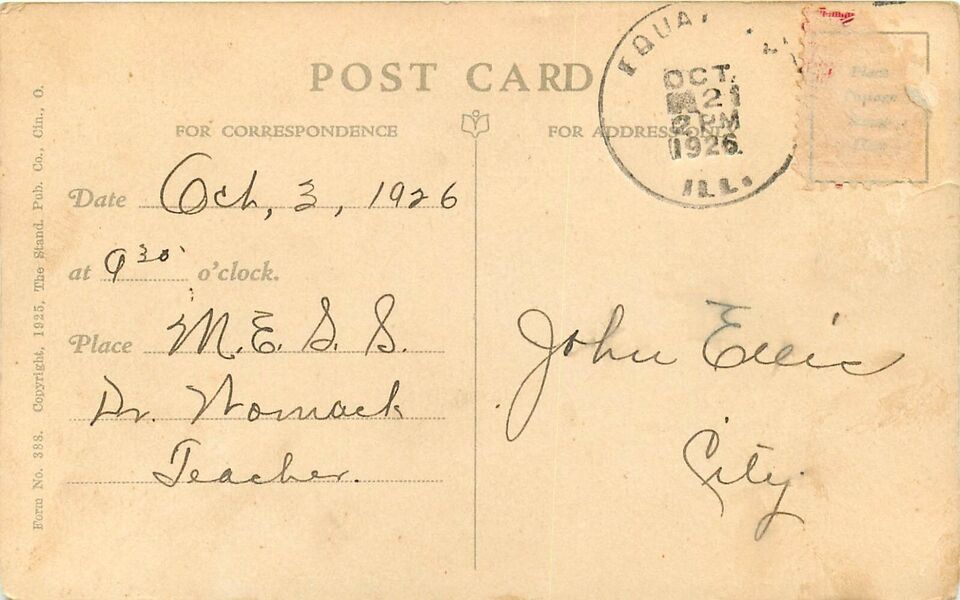 POST CARD
FOR CORRESPONDENCE
FOR ADDRESS ONLY
OCT.
21
2 PM
1926
ILL.
Place
Postage
Stamp
Here
Date Oct, 3, 1926
at 9 30 o'clock.
Place M. E. S. S.
Dr. Womack
Teacher.
John Ellis
City
Form No. 388. Copyright, 1925, The Stand. Pub. Co., Cin., O.